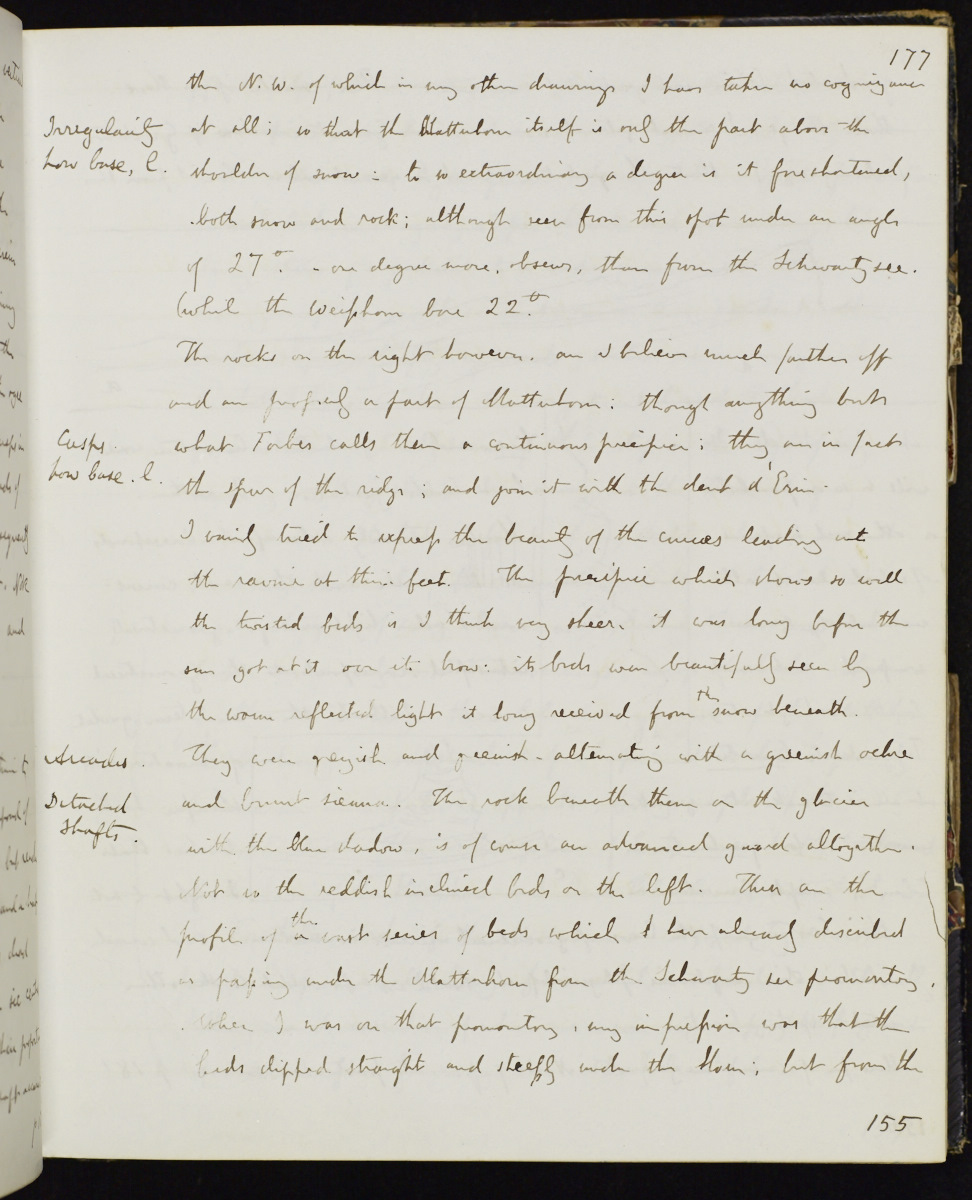 177
the N.W. of which in my other drawings I have taken no cognizance
Irregularity
how base, l.
at all; so that the Matterhorn itself is only the part above the
shoulder of snow: to so extraordinary a degree is it foreshortened,
both snow and rock; although seen from this spot under an angle
of 27°. - one degree more, observe, than from the Schwartz see.
(while the weisshorn bore 22°.
The rocks on the right however. are I believe much farther off
and are properly a part of Matterhorn: though anything but
Cusps.
how base. l.
what Forbes calls them a continuous precipice; they are in fact
the spur of the ridge; and join it with the dent d'Erin.
I vainly tried to express the beauty of the curves leading out
the ravine at their feet. The precipice which shows so well
the twisted beds is I think very sheer. it was long before the
sun got at it over its brow: its beds were beautifully seen by
the warm reflected light it long received from the snow beneath.
Arcades.
They were greyish and greenish - alternating with a greenish ochre
Detached
Shafts.
and burnt sienna. The rock beneath them on the glacier
with the blue shadow, is of course an advanced guard altogether.
Not so the reddish inclined beds on the left. These are the
profile of the vast series of beds which I have already described
as passing under the Matterhorn from the Schwartz see promontory.
When I was on that promontory, my impression was that the
beds dipped straight and steeply under the Horn; but from the
155